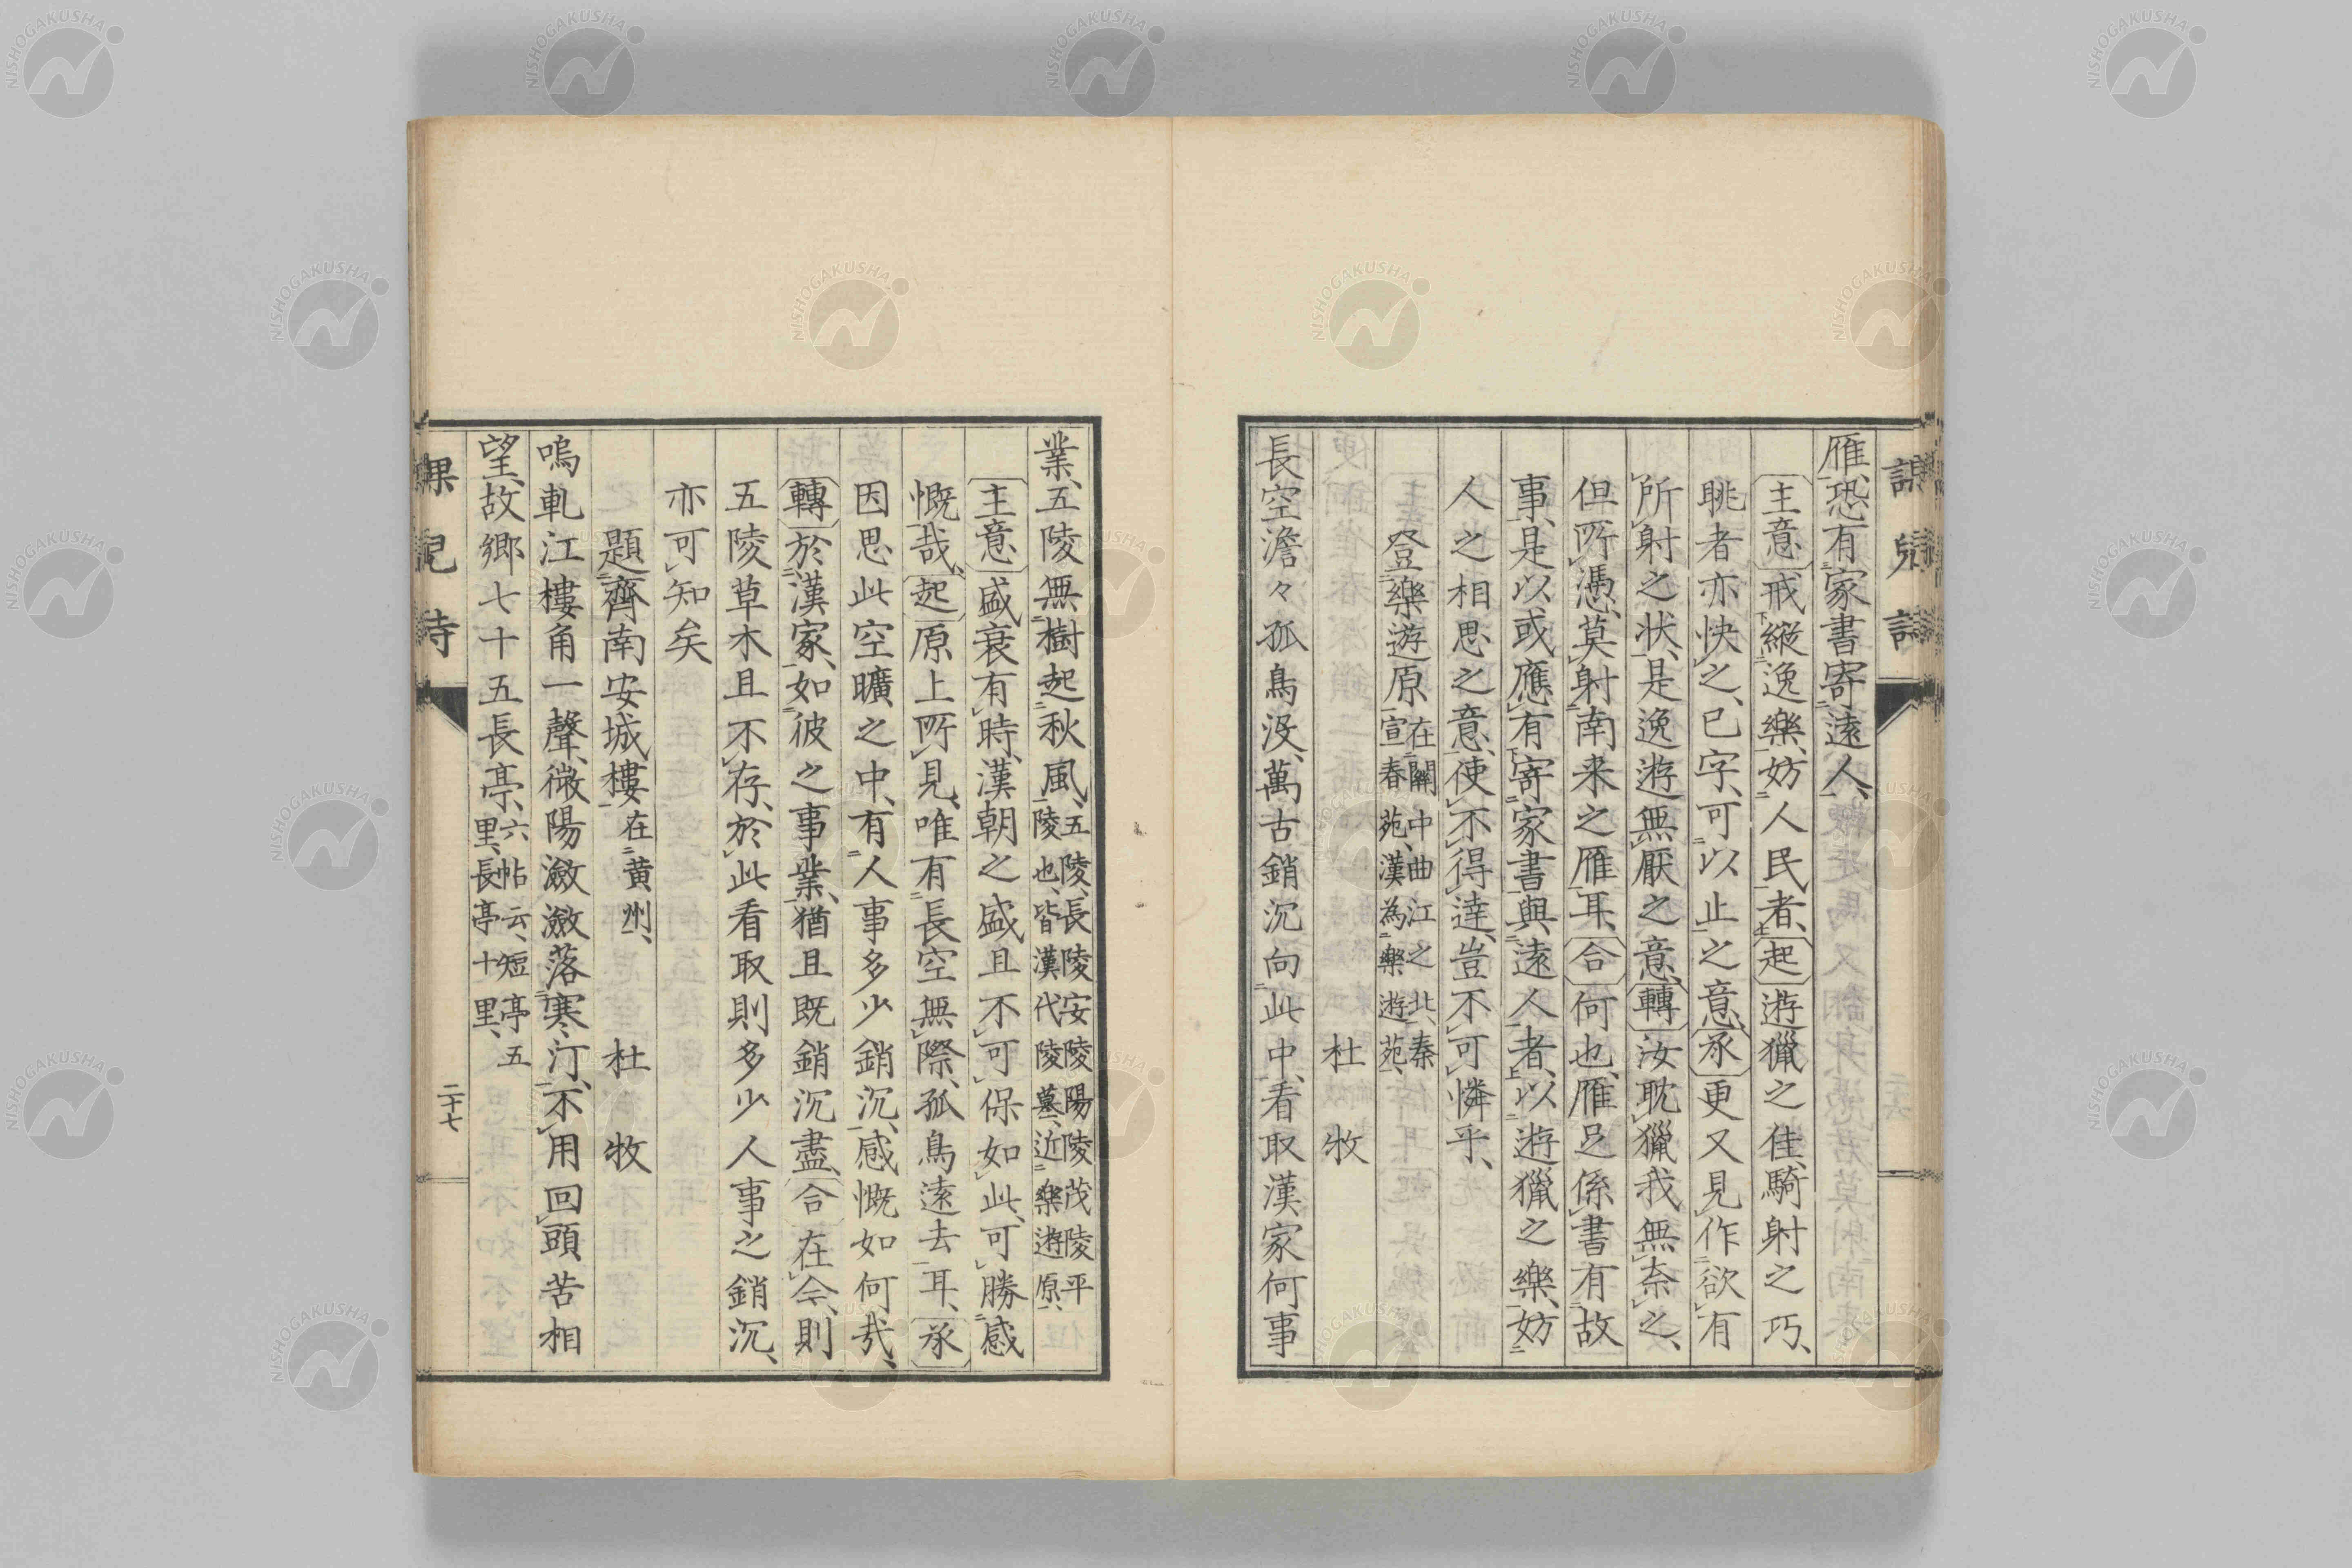 雁、恐有家書寄遠人、
主意戒縱逸樂、妨人民者、起遊獵之佳、騎射之巧、
眺者亦快之、已字、可以止之意、承更又見作欲有
所射之状、是逸遊無厭之意、轉汝耽獵我無奈之、
但所憑、莫射南来之雁耳、合何也、雁足係書有故
事、是以或應有寄家書與遠人者、以遊獵之樂、妨
人之相思之意、使不得達、豈不可憐乎、
登樂遊原在關中曲江之北、秦宣春苑、漢為樂遊苑、
杜牧
長空澹々孤鳥没、萬古銷沉向此中、看取漢家何事
業、五陵無樹起秋風、五陵、長陵安陵陽陵茂陵平陵也、皆漢代陵墓、近樂遊原、
主意盛衰有時、漢朝之盛且不可保如此、可勝感
慨哉、起原上所見、唯有長空無際、孤鳥遠去耳、承
因思此空曠之中、有人事多少銷沉、感慨如何㢤、
轉於漢家、如彼之事業、猶且既銷沉盡、合在今、則
五陵草木且不存、於此看取則多少人事之銷沉、
亦可知矣
題齊南安城樓在黄州、
杜牧
嗚軋江樓角一聲、微陽瀲瀲落寒汀、不用回頭苦相
望、故鄉七十五長亭、六帖云、短亭五里、長亭十里、
課児詩
二十七